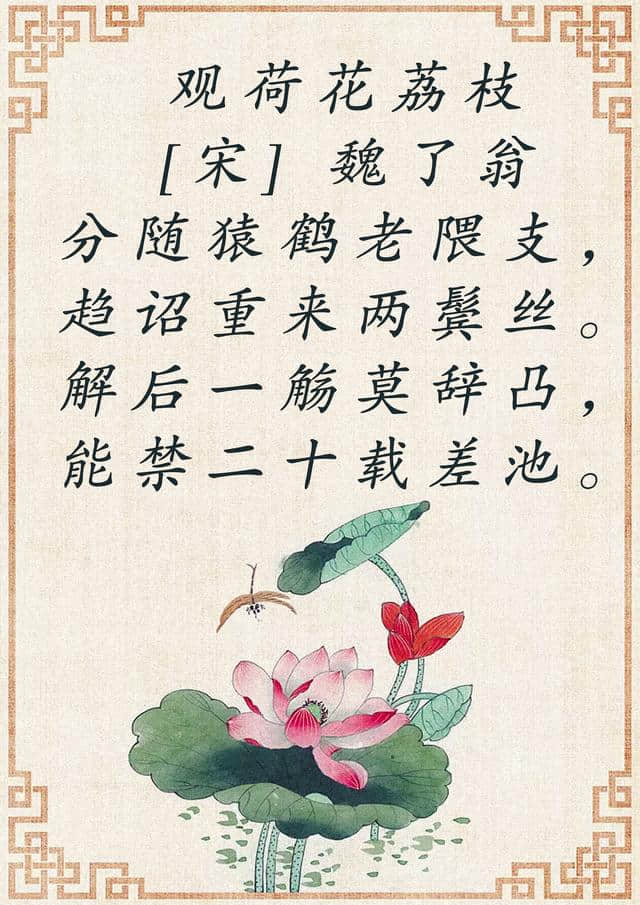 观荷花荔枝
[宋] 魏了翁
分随猿鹤老隈支，
趋诏重来两鬓丝。
解后一觞莫辞凸，
能禁二十载差池。